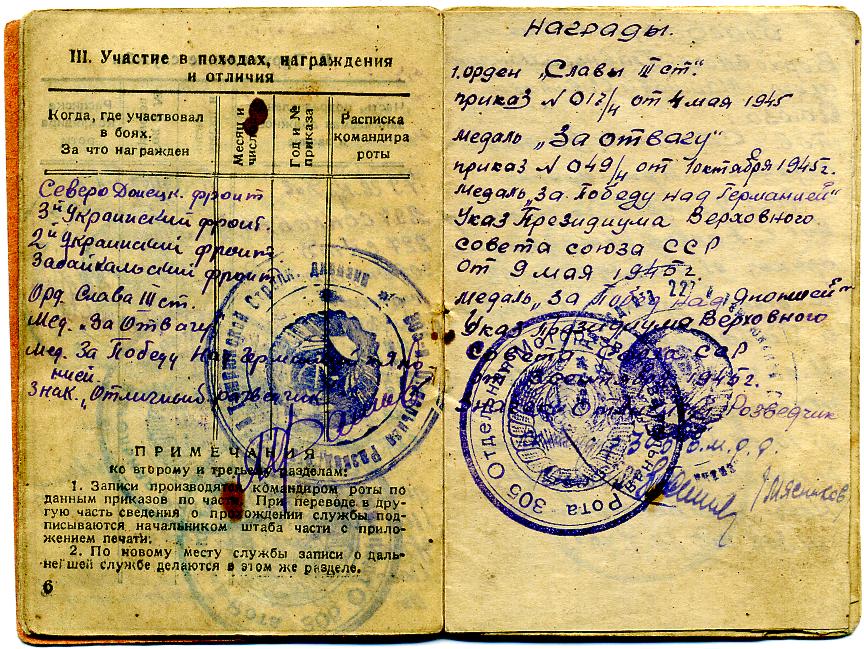 III. Участие в походах, награждения
и отличия
Когда, где участвовал
в боях.
За что награжден
Месяц и
число
Год и №
приказа
Расписка
командира
роты
Северо Донецк. фронт
3й Украинский фронт.
2й Украинский фронт
Забайкальский фронт
Орд. Слава III ст.
Мед. „За Отвагу"
Мед. За Победу над
нией
Знак „Отличный
ПРИМЕЧАНИЯ
ко второму и третьему разделам:
1. Записи производятся командиром роты по
данным приказов по части. При переводе в дру-
гую часть сведения о прохождении службы под-
писываются начальником штаба части с прило-
жением печати.
2. По новому месту службы записи о даль-
нейшей службе делаются в этом же разделе.
6
Награды.
1. орден „Славы III ст."
приказ N 017/н от 4 мая 1945
медаль „За отвагу"
приказ N 049/н от 1 октября 1945 г.
медаль „за Победу над Германией"
Указ Президиума Верховного
совета союза ССР
от 9 мая 1945 г.
медаль „за Победу над Японией"
Указ Президиума Верховного
Совета Союза ССР
1945 г.
Розведчик
305
Отдельная
Рота
Мясников